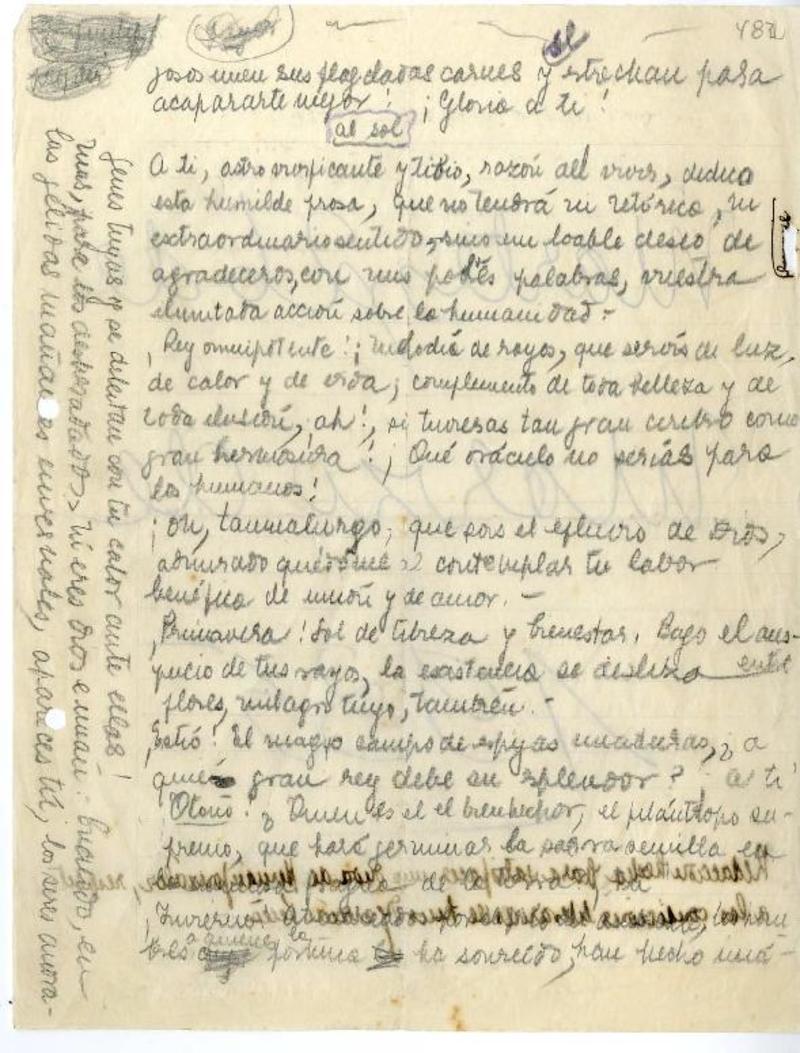 482
josos unen sus flageladas carnes y estrechan para
acapararte mejor! ¡Gloria a ti!
al sol
A ti, astro vivificante y tibio, razón del vivir, dedico
esta humilde prosa, que no tendrá ni retórica, ni
extraordinario sentido, sino un loable deseo de
agradeceros, con mis pobres palabras, vuestra
ilimitada acción sobre la humanidad.-
¡Rey omnipotente! ¡ de rayos, que servís de luz,
de calor y de vida; complemento de toda belleza y de
toda ilusión, ah!, si tuvieras tan gran cerebro como
gran hermosura! ¡Qué oráculo no serías para
los humanos!
¡Oh, taumaturgo, que sois el efluvio de Dios,
admirado quédome al contemplar tu labor
benéfica de unión y de amor.-
¡Primavera! Sol de tibieza y bienestar. Bajo el aus-
picio de tus rayos, la existencia se desliza entre
flores, milagro tuyo, también.-
¡Estío! El mago campo de espigas maduras, ¿a
quién gran rey debe su esplendor? A ti
¡Otoño! ¿Quien es el el bienhechor, el filántropo su-
premo, que hará germinar la semilla en
de la
¡Invierno!
tres a quienes la fortuna ha sonreído, han hecho imá-
genes tuyas y se deleitan con tu calor ante ellas!
Mas, para los desheredados, tú eres Dios e imán: Cuando, en
las gélidas mañanas invernales, apareces tú, los seres andra-